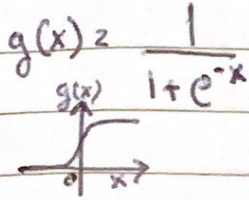 g(x) = 1 / 1 + e^-x
g(x)
0 x